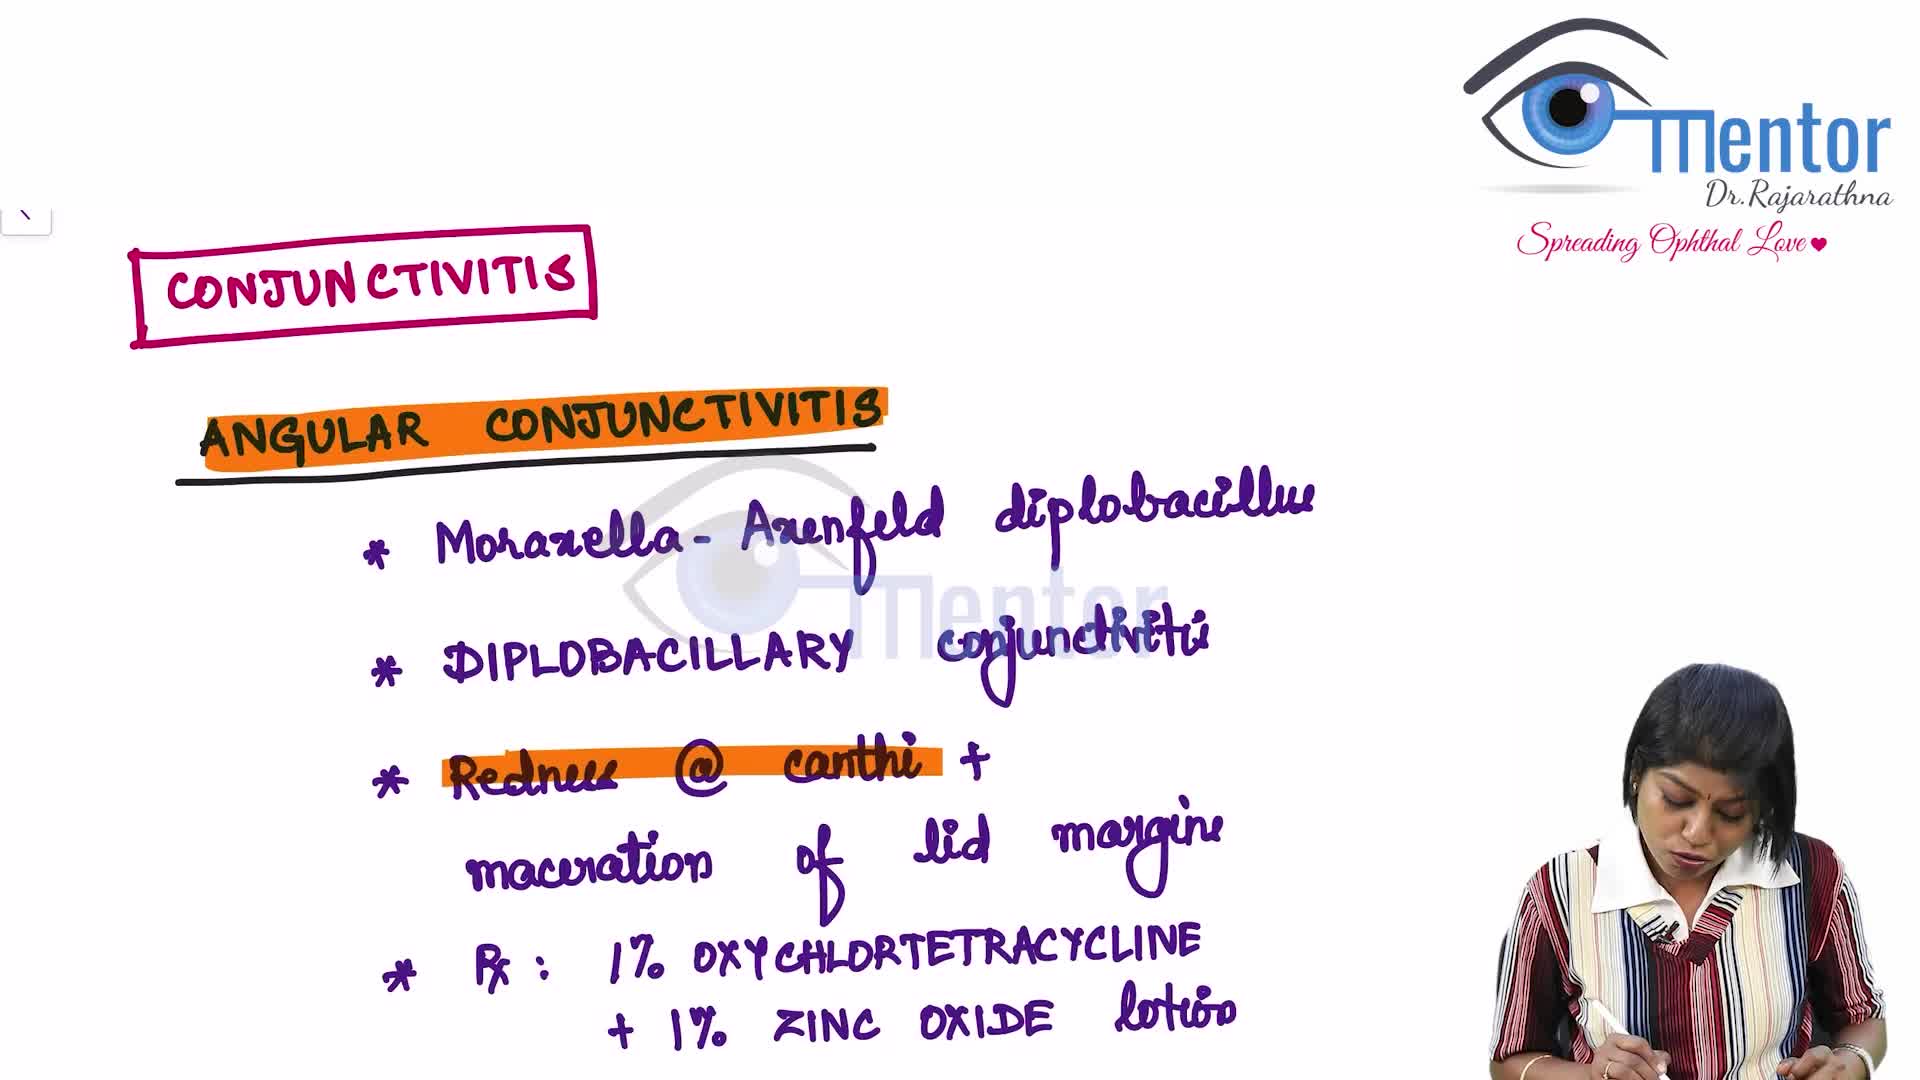 mentor
Dr.Rajarathna
Spreading Ophthal Love
CONJUNCTIVITIS
ANGULAR CONJUNCTIVITIS
* Moraxella - Axenfeld diplobacillus
* DIPLOBACILLARY conjunctivitis
mentor
* Redness @ canthi +
maceration of lid margins
* Rx : 1% OXYCHLORTETRACYCLINE
+ 1% ZINC OXIDE lotion